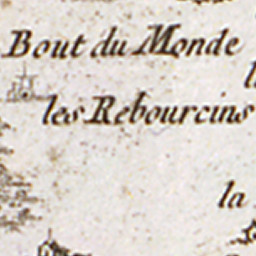 Bout du Monde
les Rebourcins
la